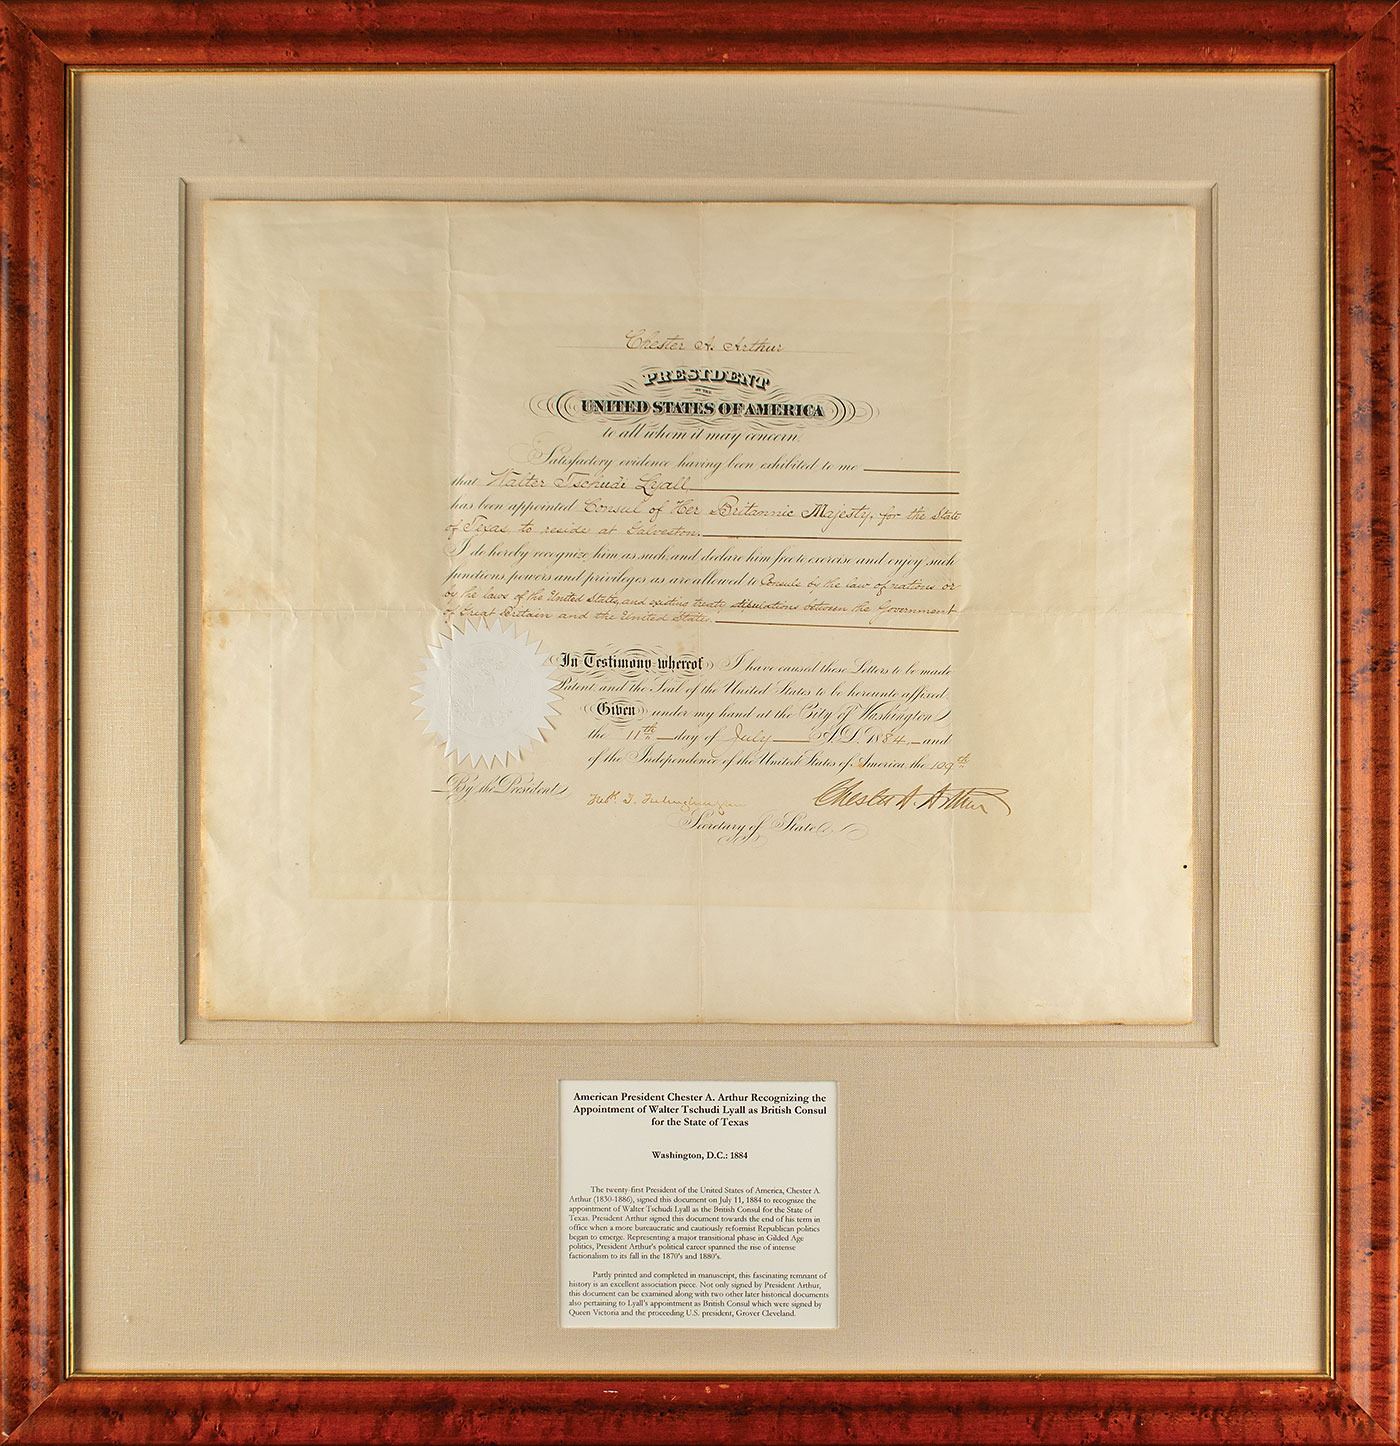 Chester A. Arthur
PRESIDENT
OF THE
UNITED STATES OF AMERICA
to all whom it may concern:
Satisfactory evidence having been exhibited to me
that Walter Tschudi Lyall
has been appointed Consul of Her Britannic Majesty, for the State
of Texas, to reside at Galveston.
I do hereby recognize him as such, and declare him free to exercise and enjoy such
functions, powers and privileges as are allowed to Consuls by the law of nations or
by the laws of the United States, and existing treaty stipulations between the Government
of Great Britain and the United States.
In Testimony whereof I have caused these Letters to be made
Patent, and the Seal of the United States to be hereunto affixed.
Given under my hand at the City of Washington
the 11th day of July A.D. 1884, and
of the Independence of the United States of America, the 109th.
By the President
Fredk. T. Frelinghuysen
Chester A. Arthur
Secretary of State
American President Chester A. Arthur Recognizing the
Appointment of Walter Tschudi Lyall as British Consul
for the State of Texas
Washington, D.C.: 1884
The twenty-first President of the United States of America, Chester A.
Arthur (1830-1886), signed this document on July 11, 1884 to recognize the
appointment of Walter Tschudi Lyall as the British Consul for the State of
Texas. President Arthur signed this document towards the end of his term in
office when a more bureaucratic and cautiously reformist Republican politics
began to emerge. Representing a major transitional phase in Gilded Age
politics, President Arthur's political career spanned the rise of intense
factionalism to its fall in the 1870's and 1880's.
Partly printed and completed in manuscript, this fascinating remnant of
history is an excellent association piece. Not only signed by President Arthur,
this document can be examined along with two other later historical documents
also pertaining to Lyall's appointment as British Consul which were signed by
Queen Victoria and the proceeding U.S. president, Grover Cleveland.